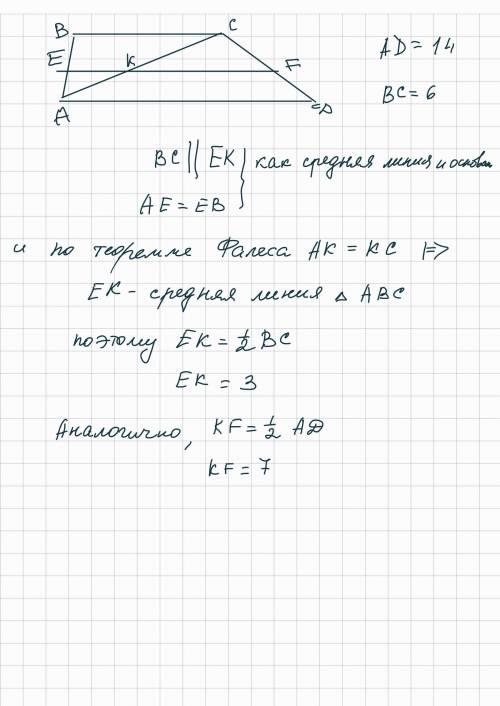 B
C
E
K
F
A
D
AD = 14
BC = 6
BC || EK } как средняя линия и основан
AE = EB
и по теореме Фалеса AK = KC |=>
EK - средняя линия △ ABC
поэтому EK = 1/2 BC
EK = 3
Аналогично, KF = 1/2 AD
KF = 7